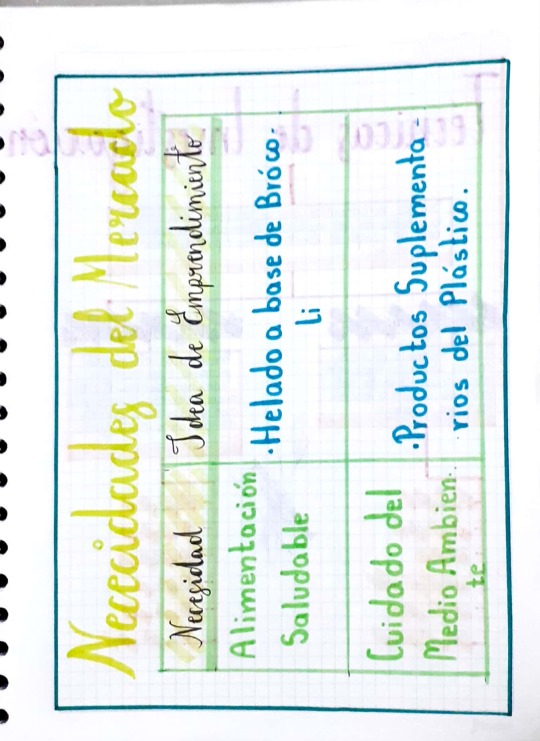 Nececidades del Mercado
Necesidad
Idea de Emprendimiento
Alimentación
Saludable
·Helado a base de Bróco-
Li
Cuidado del
Medio Ambien-
te
·Productos Suplementa-
rios del Plástico.
Tecnicas de Investigación